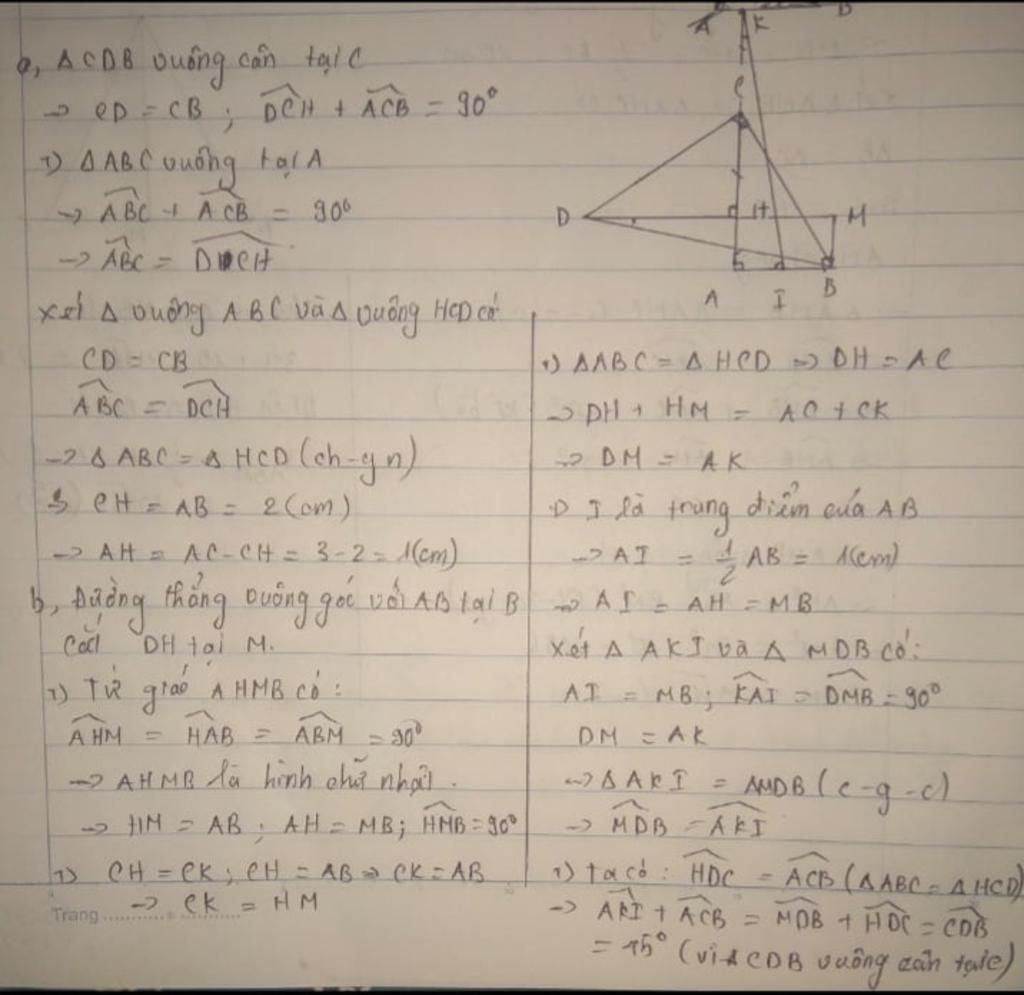 a, ΔCDB vuông cân tại C
→ CD = CB ; DCH + ACB = 90°
+) ΔABC vuông tại A
→ ABC + ACB = 90°
→ ABC = DCH
Xét Δ vuông ABC và Δ vuông HCD có
CD = CB
ABC = DCH
→ Δ ABC = Δ HCD (ch-gn)
→ CH = AB = 2 (cm)
→ AH = AC - CH = 3 - 2 = 1(cm)
b, Đường thẳng vuông góc với AB tại B
cắt DH tại M.
+) Tứ giác AHMB có :
AHM = HAB = ABM = 90°
→ AHMB là hình chữ nhật.
→ HM = AB ; AH = MB ; HMB = 90°
+) CH = CK ; CH = AB ⇒ CK = AB
→ CK = HM
Trang
A K
C
D H M
A I B
+) ΔABC = Δ HCD ⇒ DH = AC
→ DH + HM = AC + CK
→ DM = AK
+) I là trung điểm của AB
→ AI = 1/2 AB = 1(cm)
→ AI = AH = MB
Xét Δ AKI và Δ MDB có:
AI = MB ; KAI = DMB = 90°
DM = AK
→ Δ AKI = ΔMDB (c-g-c)
→ MDB = AKI
+) ta có : HDC = ACB (ΔABC = ΔHCD)
→ AKI + ACB = MDB + HDC = CDB
= 45° (vì ΔCDB vuông cân tại C)